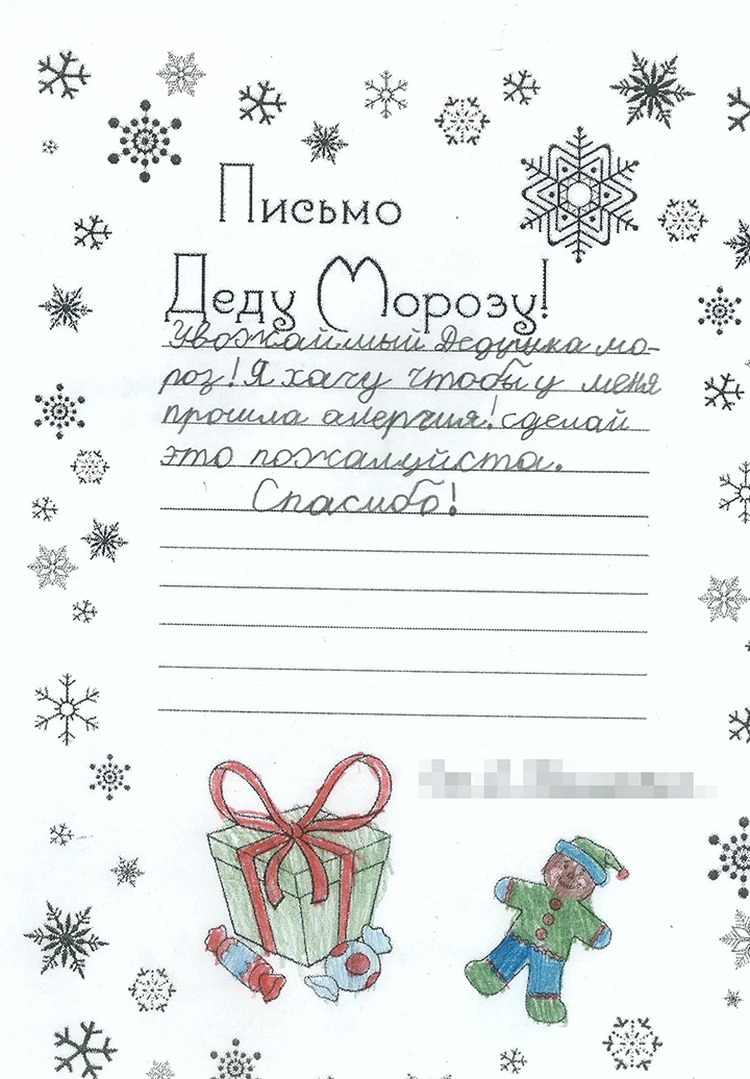 Письмо
Деду Морозу!
Уважаймый Дедушка мо-
роз! Я хачу чтобы у меня
прошла алергия! сделай
это пожалуйста.
Спасибо!